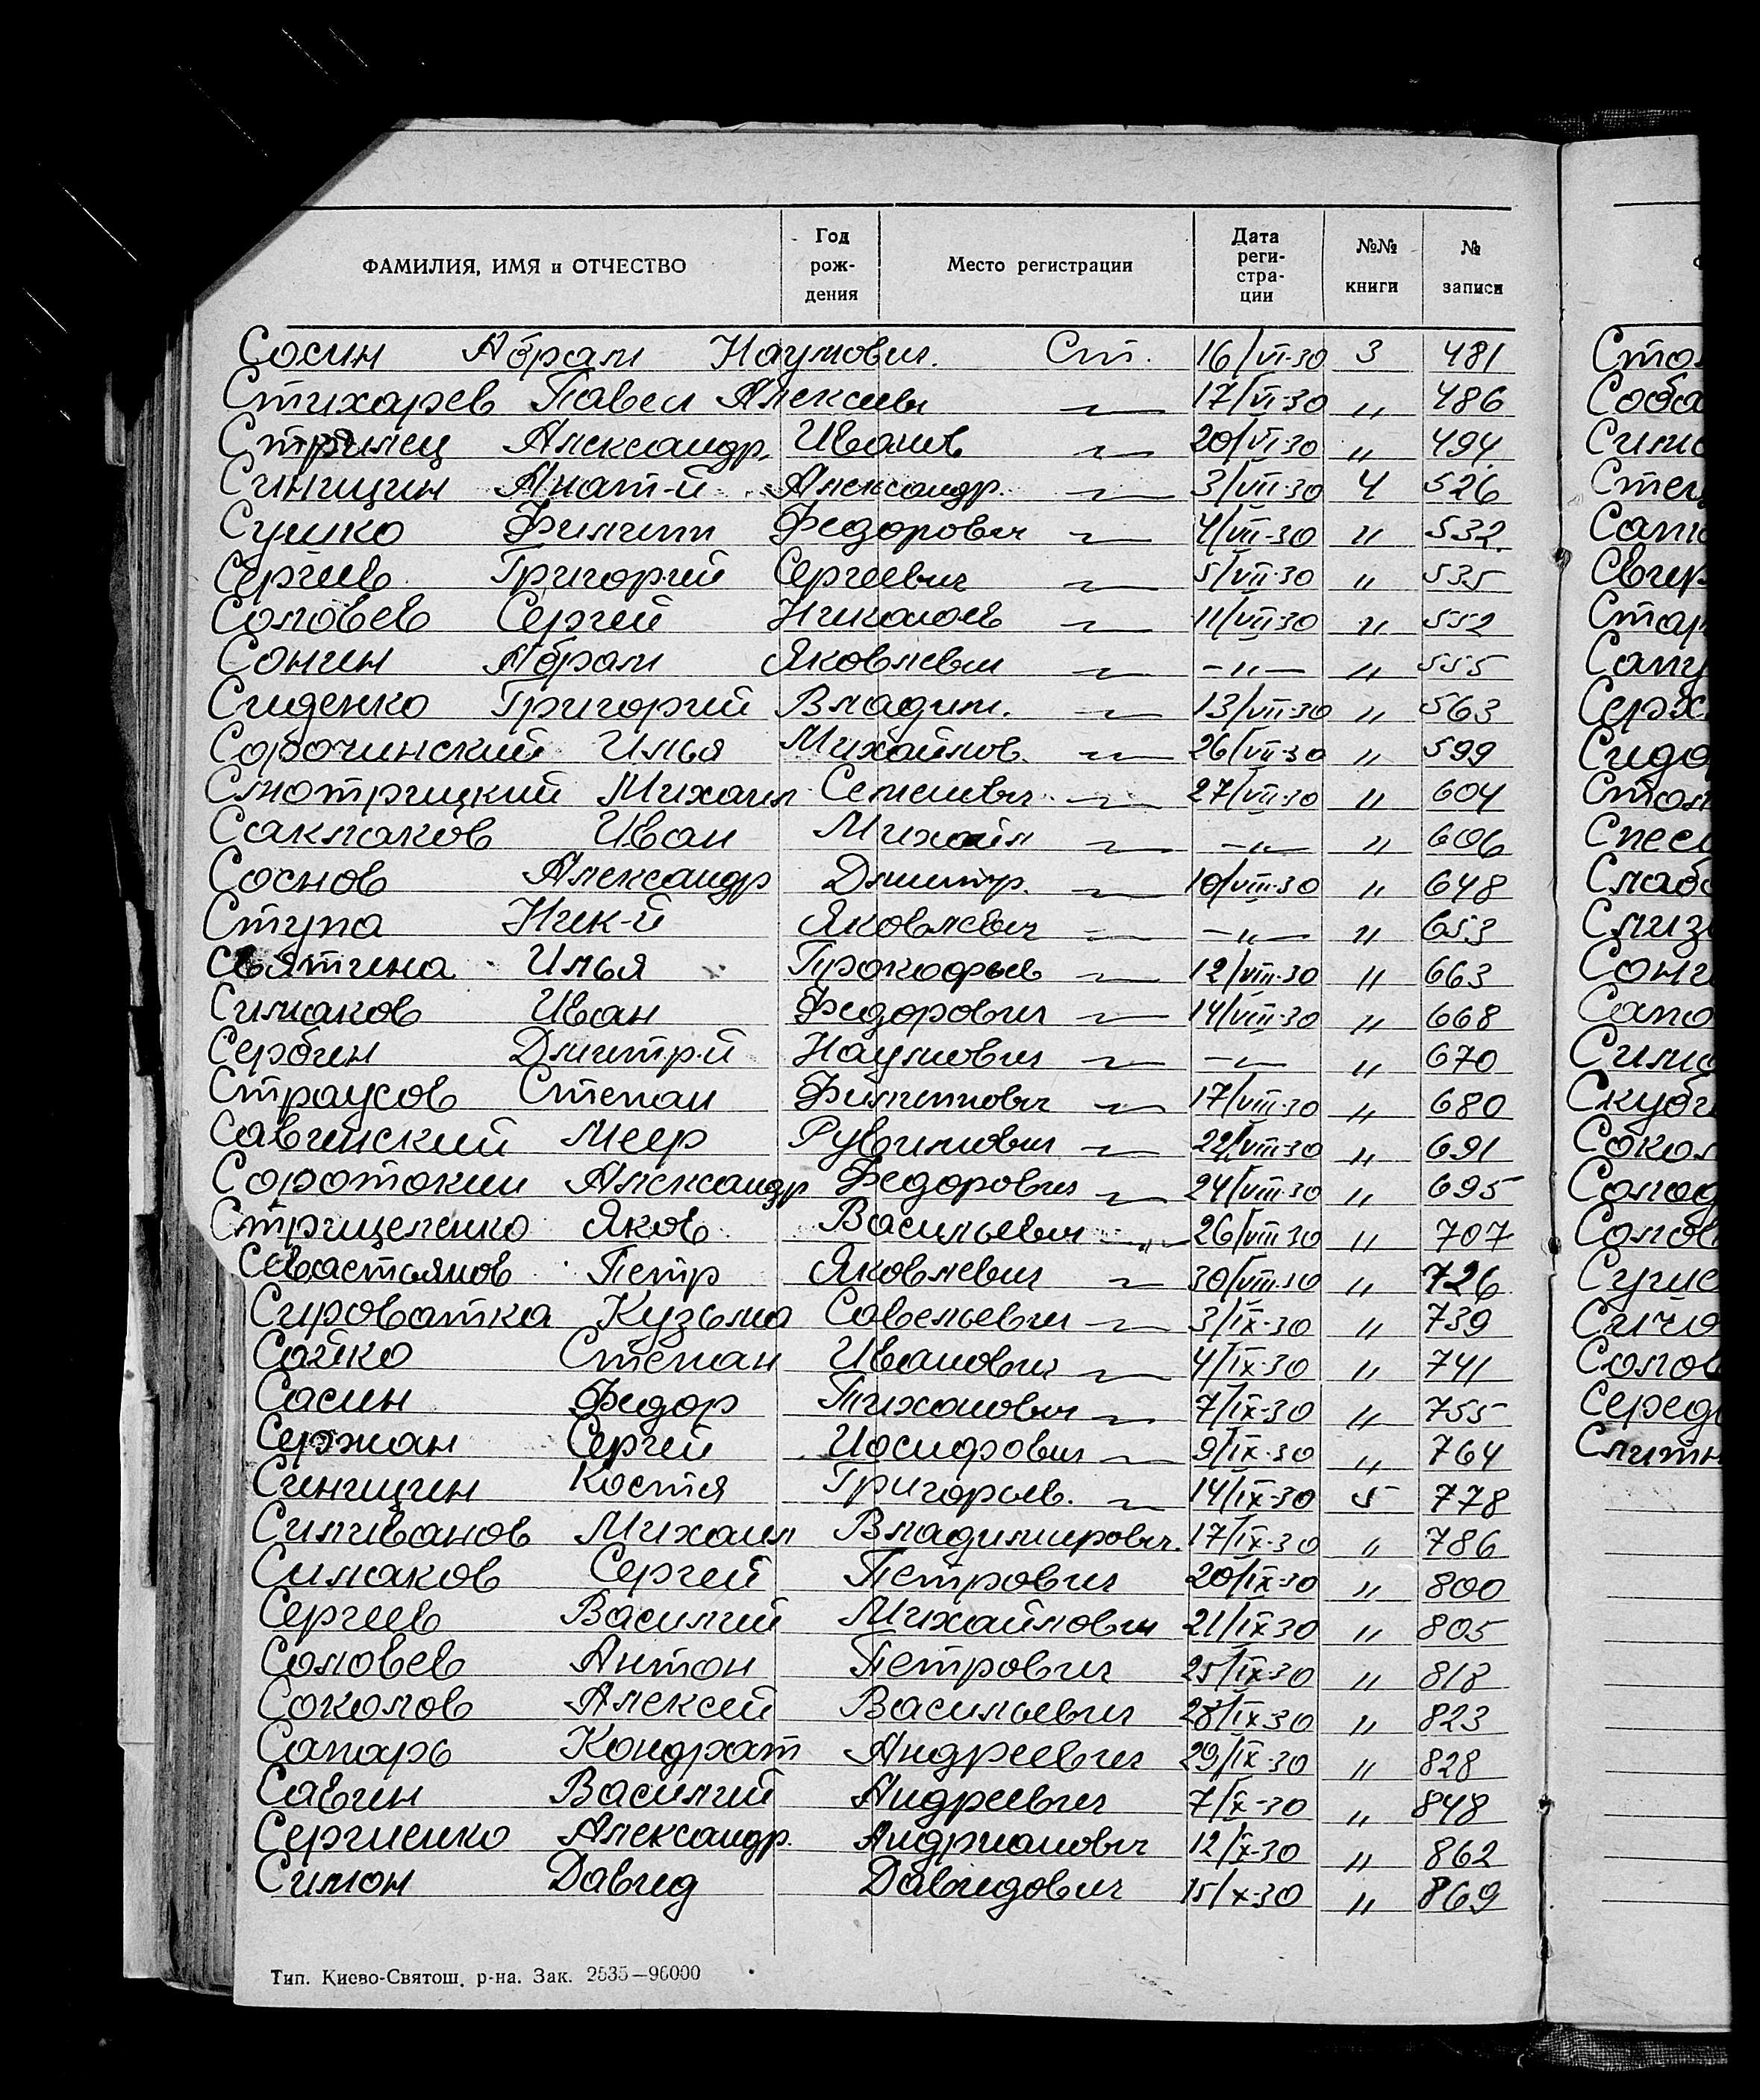 ФАМИЛИЯ, ИМЯ и ОТЧЕСТВО Год рож- дения Место регистрации Дата реги- стра- ции №№ книги № записи
Сосин Абрам Наумович. Ст. 16/VI-30 3 481
Стихарев Павел Алексеевич 17/VI-30 " 486
Стрилец Александр. Иванов 20/VI-30 " 494
Синицин Анат-й Александр. 3/VII-30 4 526
Сушко Филипп Федорович 4/VII-30 " 532
Сергеев Григорий Сергеевич 5/VII-30 " 535
Соловьев Сергей Николаев 11/VII-30 " 552
Сонин Абрам Яковлевич -"- " 555
Сиденко Григорий Владим. 13/VII-30 " 563
Сорочинский Илья Михайлов. 26/VII-30 " 599
Смотрицкий Михаил Семенович 27/VII-30 " 604
Саклаков Иван Михайл -"- " 606
Соснов Александр Дмитр. 10/VIII-30 " 648
Ступа Ник-й Яковлевич -"- " 653
Святина Илья Прокофьев 12/VIII-30 " 663
Симаков Иван Федорович 14/VIII-30 " 668
Сербин Дмитр-й Наумович -"- " 670
Страусов Степан Филиппович 17/VIII-30 " 680
Савинский Меер Рувимович 22/VIII-30 " 691
Соротокин Александр Федорович 24/VIII-30 " 695
Стрищеленко Яков Васильевич 26/VIII-30 " 707
Севастьянов Петр Яковлевич 30/VIII-30 " 726
Сироватка Кузьма Савельевич 3/IX-30 " 739
Сайко Степан Иванович 4/IX-30 " 741
Сасин Федор Тиханович 7/IX-30 " 755
Сержан Сергей Иосифович 9/IX-30 " 764
Синицин Костя Григорьев. 14/IX-30 5 778
Силиванов Михаил Владимирович. 17/IX-30 " 786
Симаков Сергей Петрович 20/IX-30 " 800
Сергеев Василий Михайлович 21/IX-30 " 805
Соловьев Антон Петрович 25/IX-30 " 818
Соколов Алексей Васильевич 28/IX-30 " 823
Сапарь Кондрат Андреевич 29/IX-30 " 828
Савин Василий Андреевич 7/X-30 " 848
Сергиенко Александр. Андрианович 12/X-30 " 862
Симон Давид Давидович 15/X-30 " 869
Тип. Киево-Святош. р-на. Зак. 2535—96000